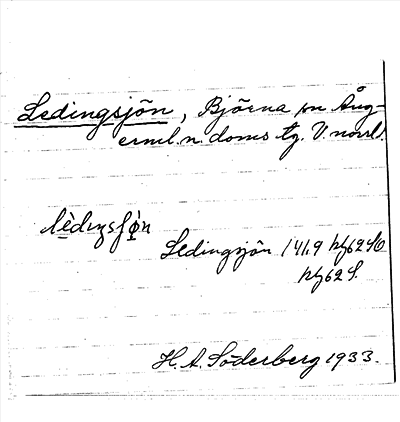 Ledingsjön, Björna sn Ång-
erml. n. doms tg. V. norrl.
lèdıŋsʃö̀n
Ledingsjön 141.9 htg62NO
htg62S.
H. A. Söderberg 1933.